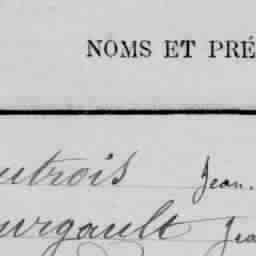 NOMS ET PRÉ
utrois Jean.
urgault Jea